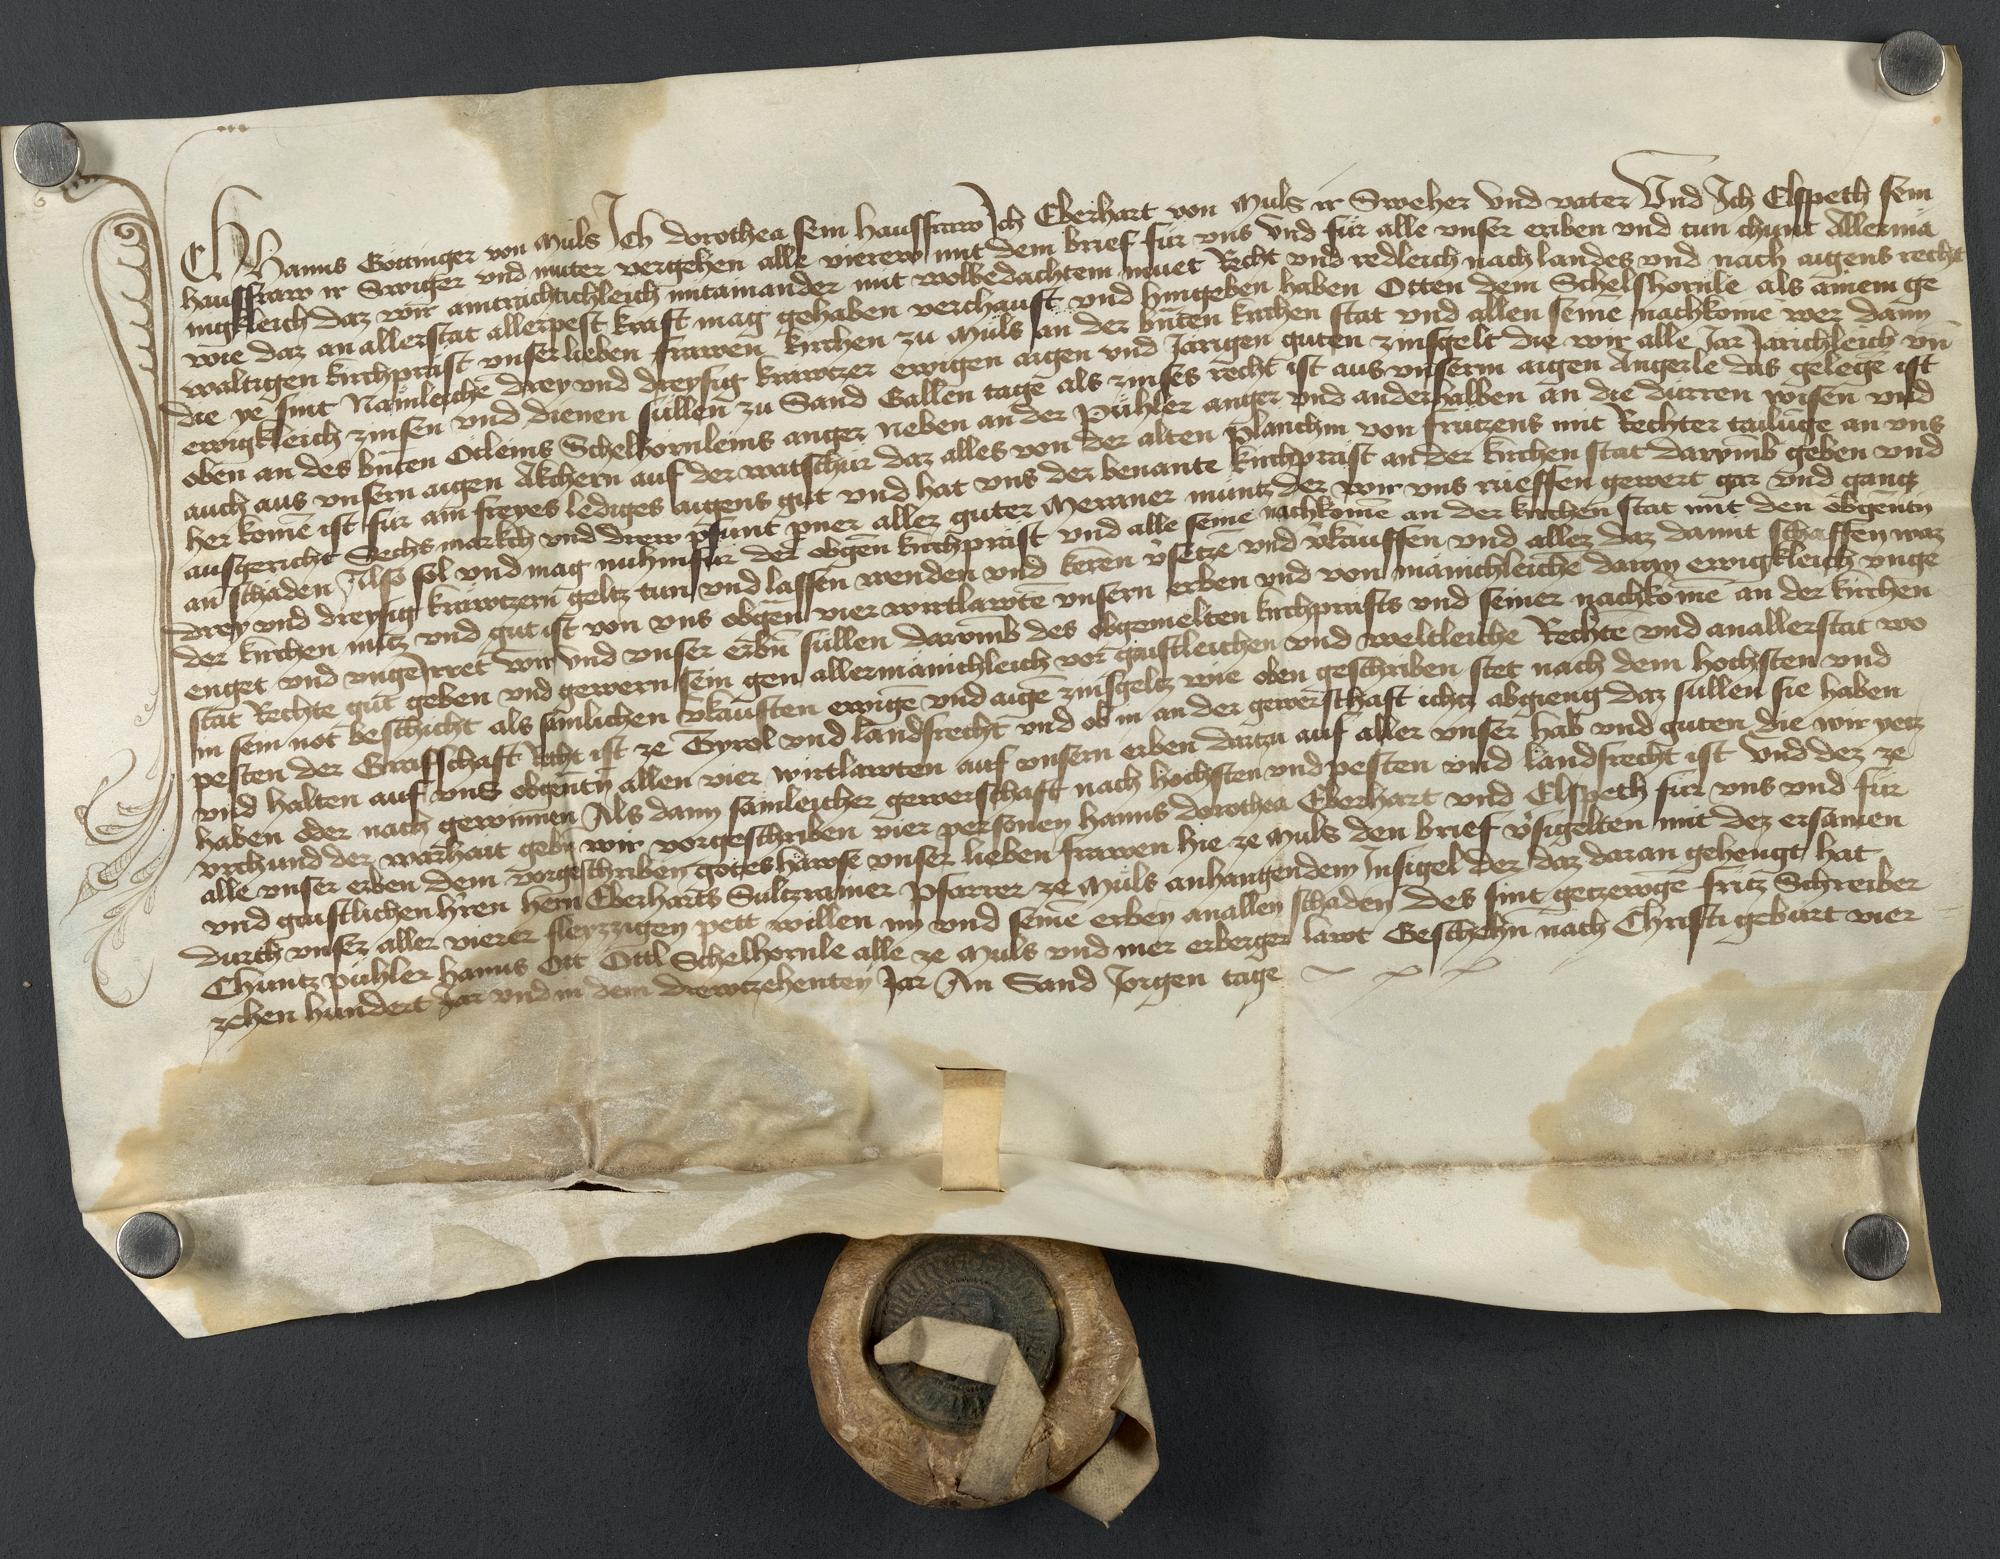 Ich Hanns Gottinger von Muls Ich dorothea sein hausffraw Ich Eberhart von Muls ir Sweher Vnd vater Vnd Ich Elspeth sein
hausffraw ir Swiger vnd muter vergehen alle vierew mit dem brief für vns vnd für alle vnser eriben vnd tun chunt Allermä
nigkleich daz wir aintrachtichleich mitainander mit wolbedachtem muet Recht vnd redleich nach landes vnd nach aigens recht
wie daz an allerstat allerpest kraft mag gehaben verchauft vnd hingeben haben Otten dem Schelshornle als ainem ge
waltigen kirchprast vnser lieben frawen kirchen zu Muls an der bntn̄ kirchen stat vnd allen seinē nachkomē wer dann
die ye sint Namleichē drey vnd dreysig krawtzer ewigen aigen vnd Jarigen guten zinsgelt die wir alle Jar Jarichleich vn̄
ewigkleich zinsen vnd dienen süllen zu Sand Gallen tage als zinses recht ist aus vnserm aigen Angerle das gelegē ist
oben an des bntn̄ Otleins Schelhornleins anger neben an der Pühler anger vnd anderhalben an die dürren wisen vnd
auch aus vnsern aigen Akchern auf der watschür daz alles von der alten Planchin von frützens mit Rechter tailūge an vns
her komē ist für ain freyes lediges aigens gut vnd hat vns der benante kirchprast an der kirchen stat darvmb geben vnd
ausgericht Sechs markch vnd drew pfunt pner aller guter Meraner müntz der wir vns rüeffen gewert gar vnd gantz
an schaden Also sol vnd mag nuhinfür der obgen̄ kirchprast vnd alle seine nachkomē an der kirchen stat mit den obgentn̄
drey vnd dreysig krawtzern geltz tun vnd lassen wenden vnd kern v̄setzē vnd v̄kauffen vnd allez daz damit schaffen waz
der kirchen nutz vnd gut ist von vns obgen̄ vier wirtlawtē vnsern erben vnd von mainchleiche darin ewigkleich vnge
enget vnd vngeirret Wir vnd vnser erbn̄ süllen darvmb des obgemelten kirchprasts vnd seiner nachkomē an der kirchen
stat Rechte gut geben vnd gewern sein gen allermainichleich vor gaistleichen vnd weltleiche Rechte vnd anallerstat wo
in sein not beschicht als sämlichen v̄kauften ewigē vnd aigē zinsgeltz wie oben geschriben stet nach dem hochsten vnd
pesten der Grafschaft Recht ist ze Tyrol vnd landsrecht vnd ob in an der gewerschaft ichtz abgieng daz sullen sie haben
vnd halten auf vns obgentn̄ allen vier wirtlawten auf vnsern erben dartzu auf aller vnser hab vnd guten die wir yetz
haben oder nach gewinnen Als dann sämleicher gewerschaft nach hochsten vnd pesten vnd landsrecht ist Vnd dez ze
vrchund der warhait gebn̄ wir vorgeschriben vier personen hanns dorothea Eberhart vnd Elspeth für vns vnd für
alle vnser erben dem vorgeschriben gotes hawse vnser lieben frawen hie ze Muls den brief v̄sigelten mit dez ersamen
vnd gaistlichen hren̄ hern Eberharts Sultzrainer Pfarrer ze Muls anhangendem Insigel der daz daran gehengt hat
durch vnser aller vierer fleyzzigen pett willen im vnd seinē erben anallen schaden Des sint getzewge fritz Schreiber
Chuntz pühler hanns Ott Ottl Schelhornle alle ze Muls vnd mer erberger lawt Geschehn̄ nach Christi gebürt vier
zehen hundert Jar vnd in dem drewtzehenten Jar An Sand Jorgen tage